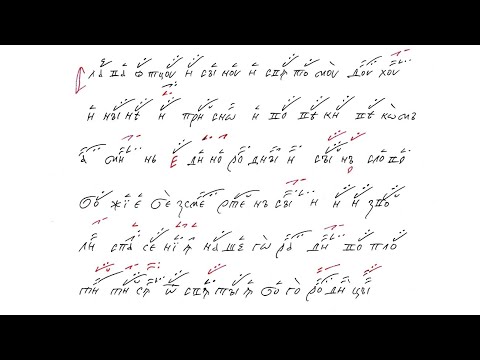 Сла ва ѻ тцоу и сы ноу и свѧ то моу доу хоу
и ны нѣ и при снѡ и во вѣ ки вѣ кѡмъ
а ми нь е ди но ро дны и сы нъ сло во
бо жї е бе зсме рте нъ сы и и и зво
ли спа се нї ѧ на ше гѡ ра ди во пло
ти ти сѧ ѿ свѧ ты ѧ бо го ро ди цы